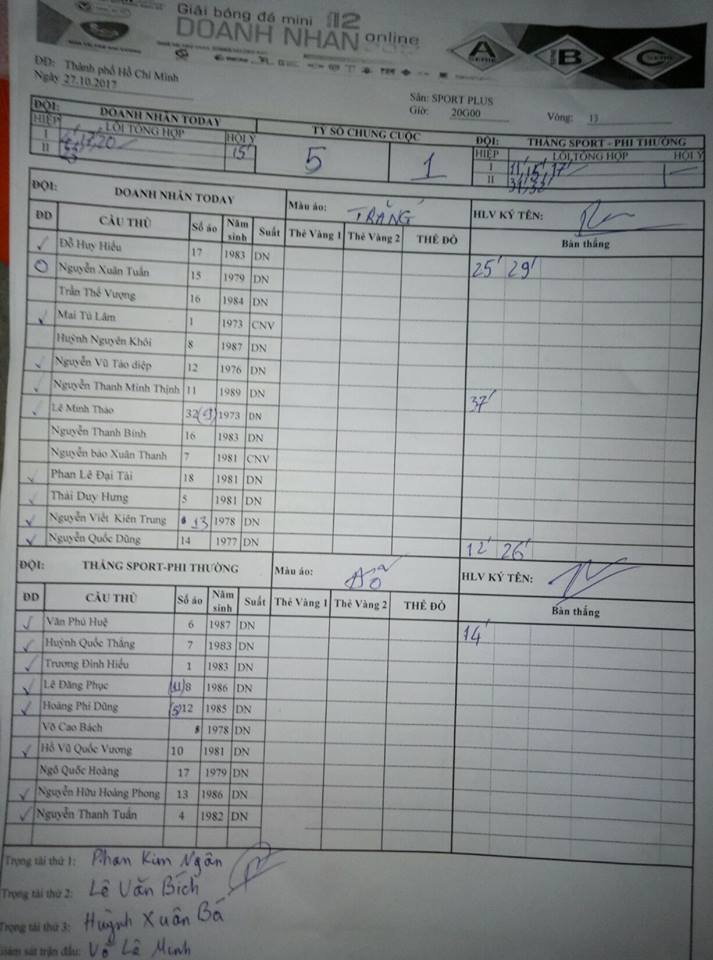 Giải bóng đá mini 12
DOANH NHÂN online
A B C
SERIE SERIE
ĐĐ: Thành phố Hồ Chí Minh
Ngày 27.10.2017
Sân: SPORT PLUS
Giờ: 20G00 Vòng: 13
ĐỘI: DOANH NHÂN TODAY TỶ SỐ CHUNG CUỘC ĐỘI: THĂNG SPORT - PHI THƯỜNG
HIỆP LỖI TỔNG HỢP HỘI Ý 5 1 HIỆP LỖI TỔNG HỢP HỘI Ý
I 15' I 11', 15', 17'
II II 31', 32'
ĐỘI: DOANH NHÂN TODAY Màu áo: TRẮNG HLV KÝ TÊN:
ĐD CẦU THỦ Số áo Năm sinh Suất Thẻ Vàng 1 Thẻ Vàng 2 THẺ ĐỎ Bàn thắng
Đỗ Huy Hiếu 17 1983 DN
Nguyễn Xuân Tuấn 15 1979 DN 25' 29'
Trần Thế Vượng 16 1984 DN
Mai Tú Lâm 1 1973 CNV
Huỳnh Nguyên Khôi 8 1987 DN
Nguyễn Vũ Táo diệp 12 1976 DN
Nguyễn Thanh Minh Thịnh 11 1989 DN
Lê Minh Thảo 32 1973 DN 37'
Nguyễn Thanh Bình 16 1983 DN
Nguyễn bảo Xuân Thanh 7 1981 CNV
Phan Lê Đại Tài 18 1981 DN
Thái Duy Hưng 5 1981 DN
Nguyễn Viết Kiên Trung 13 1978 DN
Nguyễn Quốc Dũng 14 1977 DN 12' 26'
ĐỘI: THĂNG SPORT-PHI THƯỜNG Màu áo: ĐỎ HLV KÝ TÊN:
ĐD CẦU THỦ Số áo Năm sinh Suất Thẻ Vàng 1 Thẻ Vàng 2 THẺ ĐỎ Bàn thắng
Văn Phú Huệ 6 1987 DN 14'
Huỳnh Quốc Thắng 7 1983 DN
Trương Đình Hiếu 1 1983 DN
Lê Đăng Phục (11) 8 1986 DN
Hoàng Phi Dũng (5) 12 1985 DN
Võ Cao Bách 1978 DN
Hồ Vũ Quốc Vương 10 1981 DN
Ngô Quốc Hoàng 17 1979 DN
Nguyễn Hữu Hoàng Phong 13 1986 DN
Nguyễn Thanh Tuấn 4 1982 DN
Trọng tài thứ 1: Phan Kim Ngân
Trọng tài thứ 2: Lê Văn Bích
Trọng tài thứ 3: Huỳnh Xuân Bá
Giám sát trận đấu: Võ Lê Minh